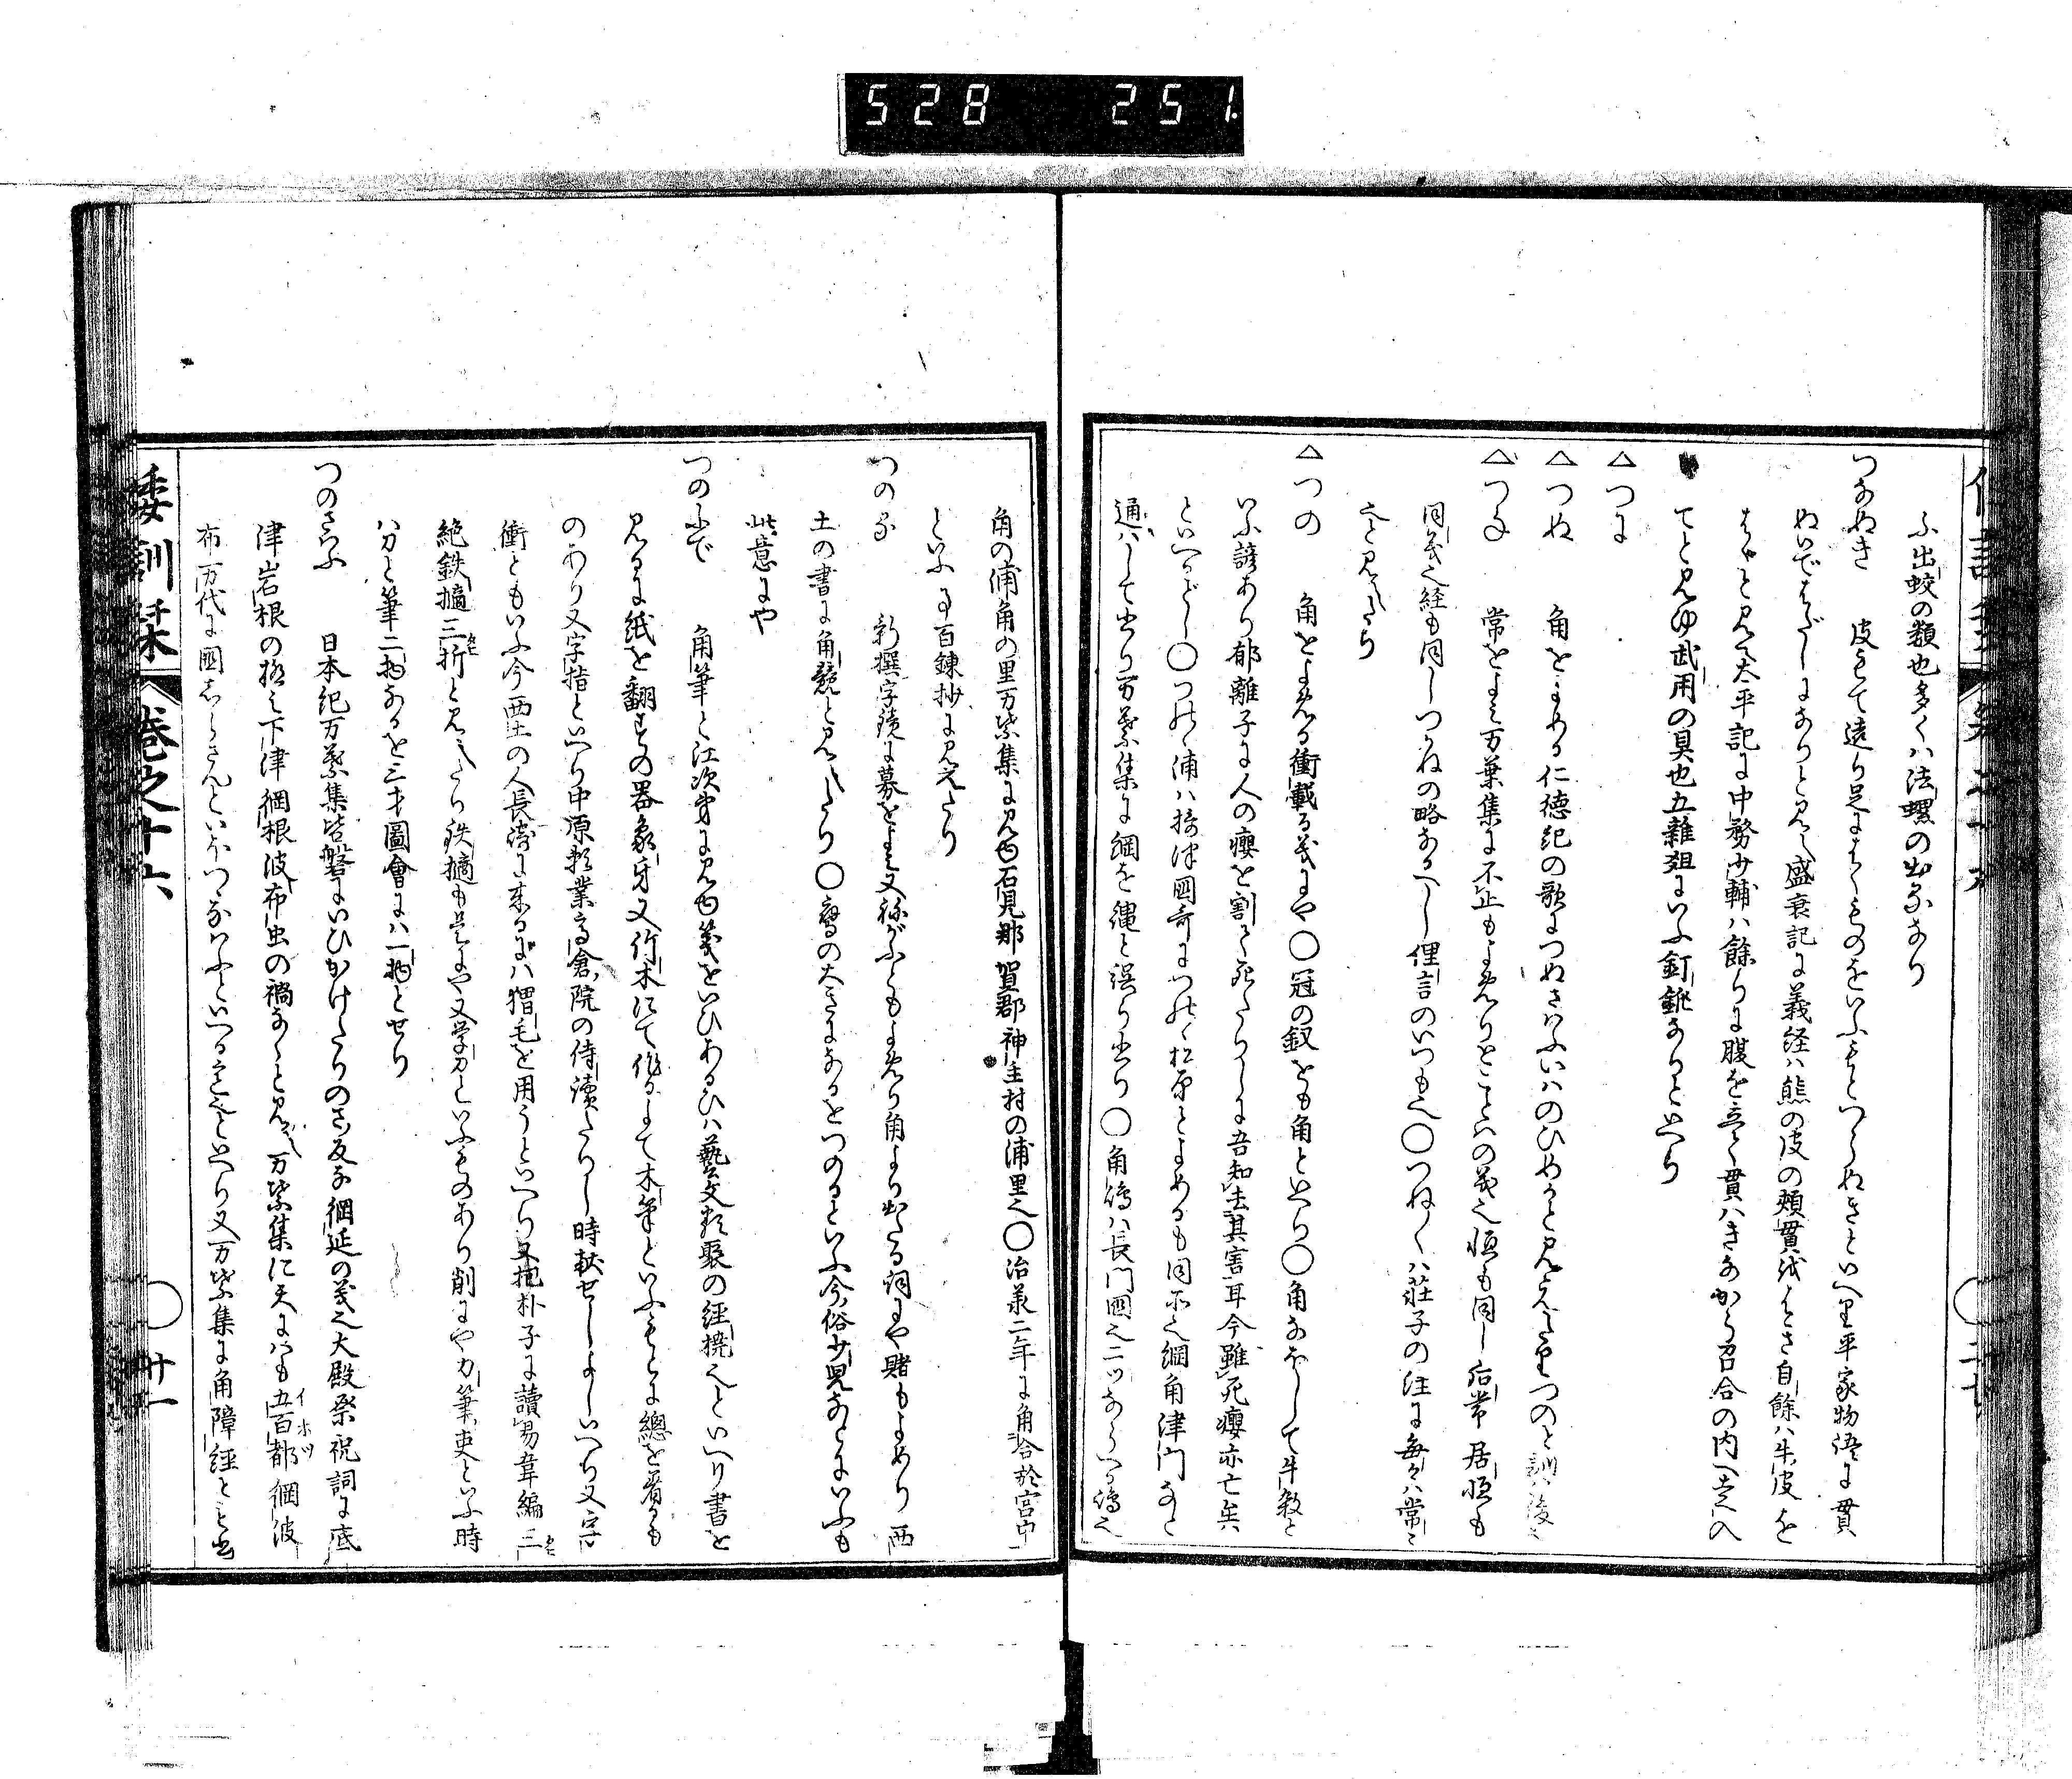 528 251
ふ出蛟の類也多くハ法螺の出るなり
つなぬき 皮もて造り足にはくものをいふもとつらぬきといへり平家物語に貫
ぬいではだしになりと見え盛衰記に義経ハ熊の皮の頬貫はき自餘ハ牛皮を
はくと見え太平記に中務少輔ハ餘りに腹を立て貫ハきなから召合の内へ走入
てと見ゆ武用の具也五雜俎にいふ釘鞋なりといへり
△つに
△つぬ 角をよめる仁徳紀の歌につぬさはふいハのひめと見えたりつのと訓
△つね 常をよミ万葉集に不止もよめりとことハの義也恒も同し 居恒も
同義也経も同しつらねの略なるへし俚言のいつも也〇つねハ莊子の注に毎々ハ常
也と見えたり
△つの 角をよめる衝載る義にや〇冠の釵をも角といへり〇角なほして牛殺と
いふ諺あり郁離子に人の癭を割て死たりしに吾知去其害耳今雖死癭亦亡矣
といへるがごとし〇つのゝ浦ハ接津國哥につのゝ松原とよめるも同所也綱角津門など
通ハして書り万葉集に綱を縄と誤り書り〇角嶋ハ長門國也二ツならへる嶋也
角の浦角の里万葉集に見ゆ石見那賀郡神主村の浦里也〇治承二年に角合於宮中
といふ事百錬抄に見えたり
つのる 新撰字鏡に募をよミ又祢がふともよめり角より出たる詞にや賭もよめり西
土の書に角競と見えたり〇鹿の大きになるをつのるといふ今俗少児なとにいふも
此意にや
つのふで 角筆と江次第に見ゆ箋をいひあるひハ藝文類聚の經撓也といへり書を
見るに紙を翻すの器象牙又竹木にて作るよて木筆といふもとに總を着るも
のあり又字指といへり中原頼業高倉院の侍讀たりし時献せしよしいへり又字
衝ともいふ今西土の人長崎に来るが猬毛を用うといへり又抱朴子に讀易韋編三
絶鉄擿三折と見えたり鉄擿も是にや又学刀といふものあり削にや刀筆吏といふ時
ハ刀と筆二物なるを三才圖會にハ一物とせり
つのさふ 日本紀万葉集皆磐にいひかけたりのさ反な綱延の義也大殿祭祝詞に底
津岩根の極ミ下津綱根波布虫の禍なしと見え万葉集に天にはも五百都綱波
布万代に國しらさんといほつなはふといへる意也といへり又万葉集に角障經とも書
倭訓栞 巻之十六 〇 廿一